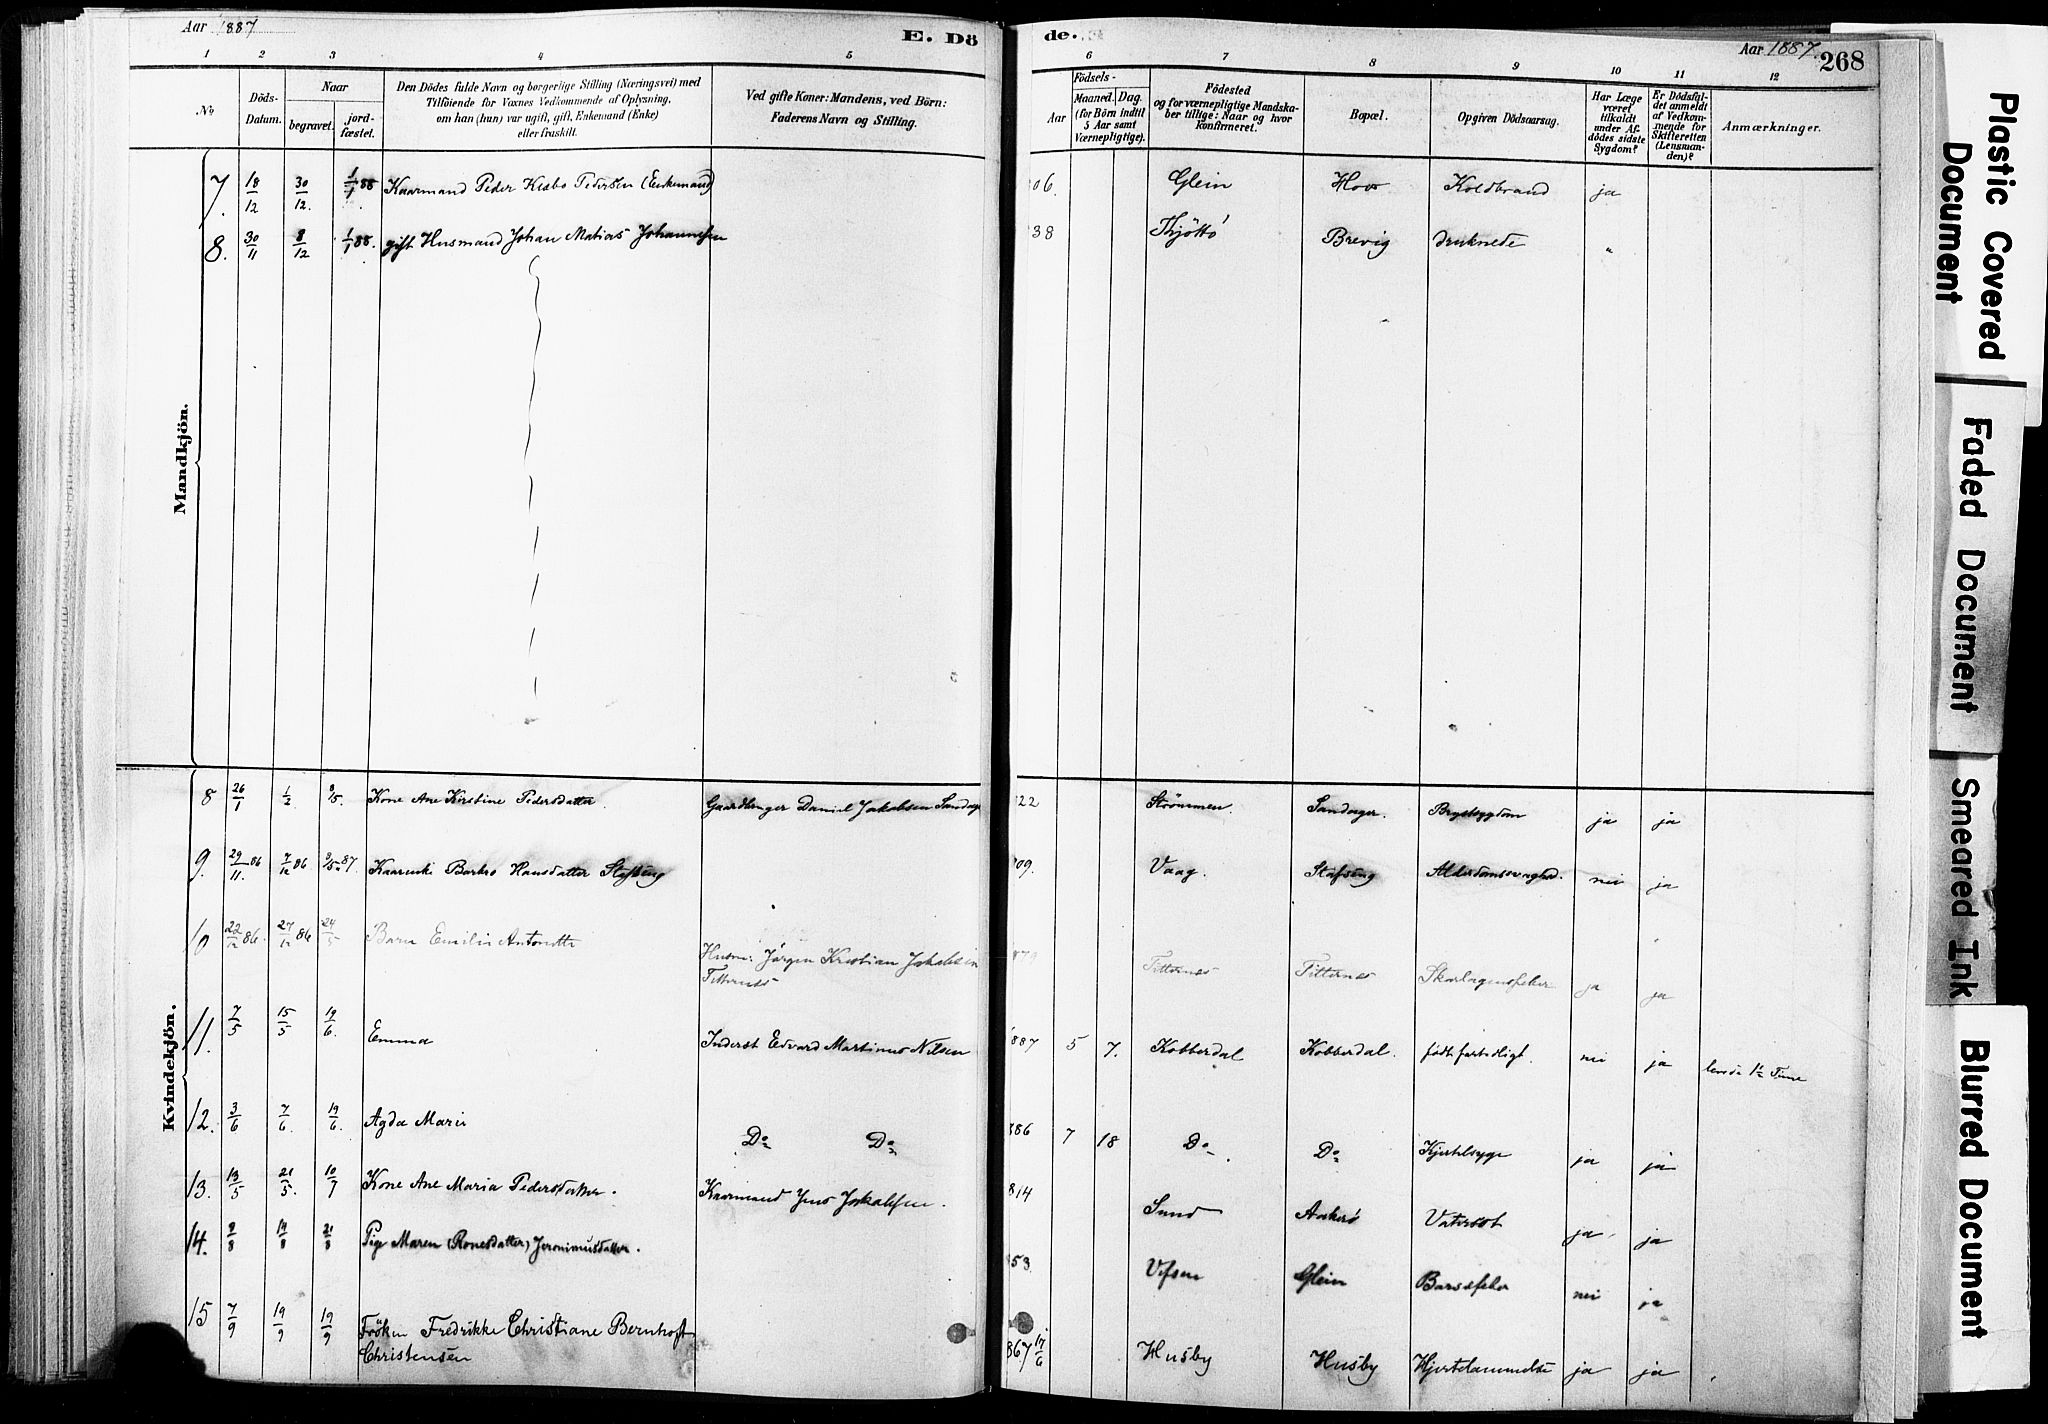 Aar 1887
E. Dö
de.
Aar 1887.
268
1 2 3 4 5
6 7 8 9 10 11 12
No
Döds-Datum.
Naar
begravet.
jord-fæstet.
Den Dödes fulde Navn og borgerlige Stilling (Næringsvei) med
Tilföiende for Voxnes Vedkommende af Oplysning,
om han (hun) var ugift, gift, Enkemand (Enke)
eller fraskilt.
Ved gifte Koner: Mandens, ved Börn:
Faderens Navn og Stilling.
Födsels-
Aar
Maaned. Dag.
(for Börn indtil
5 Aar samt
Værnepligtige).
Födested
og for værnepligtige Mandska-
ber tillige: Naar og hvor
konfirmeret.
Bopæl.
Opgiven Dödsaarsag.
Har Læge
været
tilkaldt
under Af-
dödes sidste
Sygdom?
Er Dödsfal-
det anmeldt
af Vedkom-
mende for
Skifteretten
(Lensman-
den)?
Anmærkninger.
Mandkjön.
7. 18/12 30/12. 1/1 88 Kaarmand Peder Pedersen (Enkemand) 06. Glein Hov Koldbrand ja
8. 30/11 8/12 1/1 88. gift Husmand Johan Matias Johannesen 38 Thjöttö Brevig druknede "
Kvindekjön.
8 26/1 1/2 8/5. Kone Ane Kirstine Pedersdatter. Gaardbruger Daniel Jakobsen 22 Strömmen. Sandager. Brystsygdom ja ja
9. 29/11 86 7/12 86 8/5 87 Barbro Hansdatter Stafseng 09. Vaag. Stafseng Alderdomssvaghed. nei ja
10 22/12 86. 27/12 86 24/5 Barn Emilie Antonette Husm: Jörgen Kristian Jakobsen
Titternes Titternes Titternes Skarlagensfeber ja ja
11. 7/5 15/5 19/6. Emma Inderst Edvard Martinus Nilsen 887 5 7. Kobberdal Kobberdal. födt fortidligt. nei ja levede 1½ Time
12. 3/6 7/6. 19/6. Agda Marie Do Do 886 7 18 Do Do Kjertelsyge ja ja
13. 13/5 21/5. 10/7 Kone Ane Maria Pedersdatter. Kaarmand Jens Jakobsen. 814 Sund Vatersot ja ja
14. 9/8 14/8 21/8 Pige Maren (Ronesdatter) Jeronimusdatter. 853. Vefsen Glein Barselfeber nei ja
15 7/9 19/9 19/9 Fröken Fredrikke Christiane Bernhoft
Christensen 867 17/6 Husby Husby Hjertelammelse ja ja
Plastic Covered
Document
Faded Document
Smeared Ink
Blurred Document